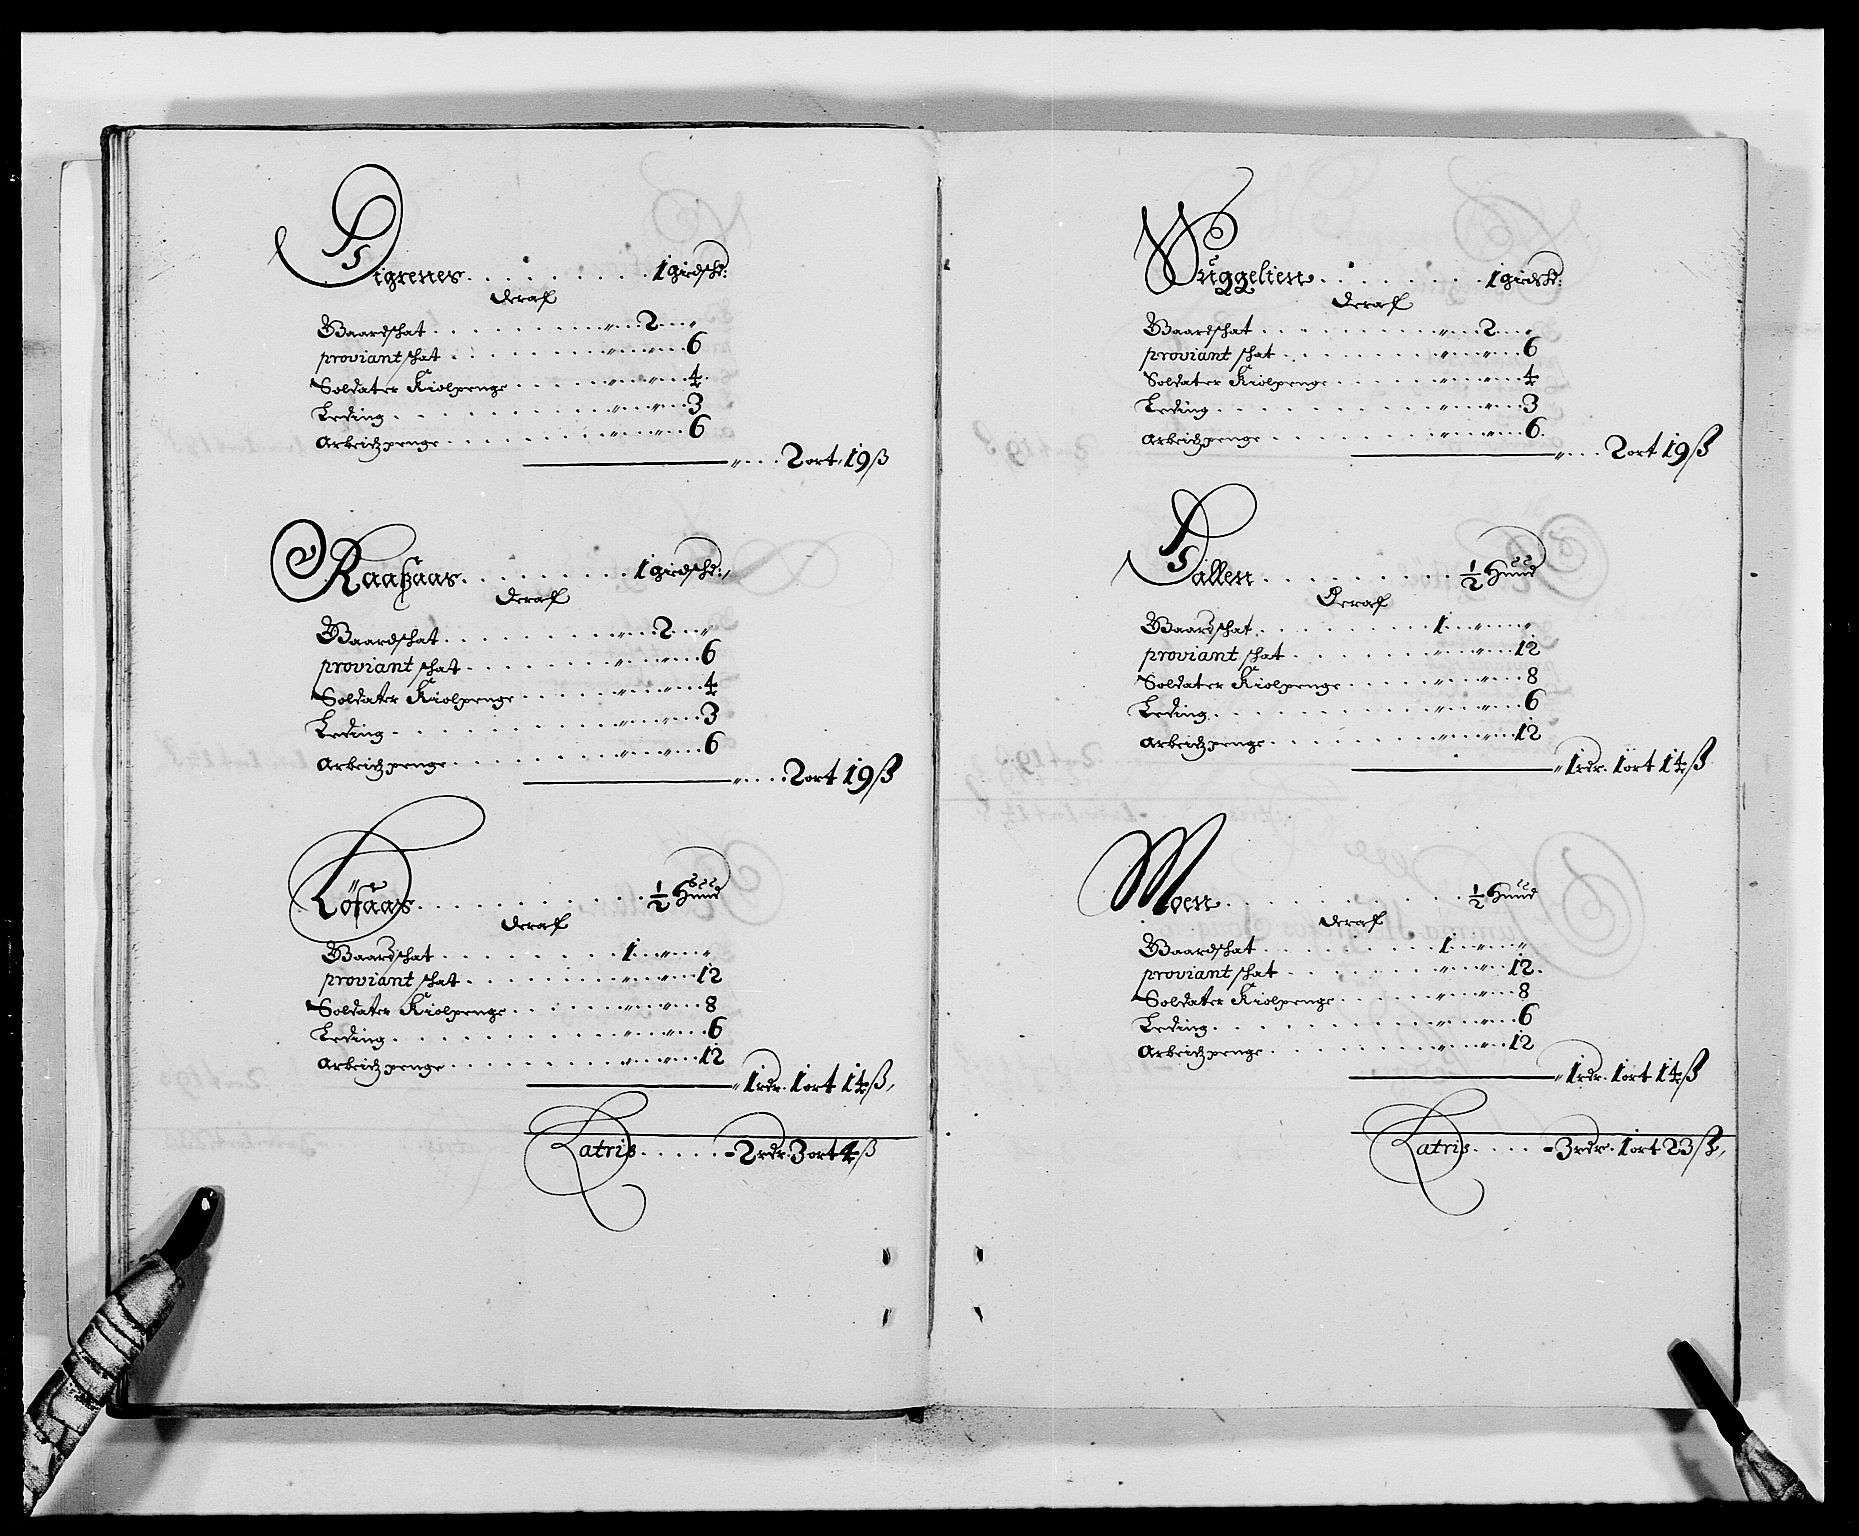 Sigrenes . . . . . . . . 1 girdshe:
Deraf
Gaardschat . . . . . . . . . „ 2 „
proviant schat . . . . . . . . „ „ 6
Soldater Kiolpenge . . . . . „ „ 4
Leding . . . . . . . . . . . „ „ 3
Arbeidzpenge . . . . . . . . „ „ 6
„ . . . . 2 ort. 19 ß
Raaßaas . . . . . . . . 1 girdshe:
Deraf
Gaardschat . . . . . . . . . „ 2 „
proviant schat . . . . . . . . „ „ 6
Soldater Kiolpenge . . . . . „ „ 4
Leding . . . . . . . . . . . „ „ 3
Arbeidzpenge . . . . . . . . „ „ 6
„ . . . . 2 ort 19 ß
Löfaas . . . . . . . . . . ½ Huud
Deraf
Gaardschat . . . . . . . . 1 „ „
proviant schat . . . . . . . . „ „ 12
Soldater Kiolpenge . . . . . „ „ 8
Leding . . . . . . . . . . . „ „ 6
Arbeidzpenge . . . . . . . . „ „ 12
„ 1 rdr. 1 ort 14 ß
Latris . . . . . - 2 rdr. 3 ort 4 ß
Wuggelien . . . . . . . . 1 girdshe:
Deraf
Gaardschat . . . . . . . . . „ 2 „
proviant schat . . . . . . . . „ „ 6
Soldater Kiolpenge . . . . . „ „ 4
Leding . . . . . . . . . . . „ „ 3
Arbeidzpenge . . . . . . . . „ „ 6
„ . . . 2 ort 19 ß
Sallen . . . . . . . . . ½ Huud
Deraf
Gaardschat . . . . . . . . 1 „ „
proviant schat . . . . . . . . „ „ 12
Soldater Kiolpenge . . . . . „ „ 8
Leding . . . . . . . . . . . „ „ 6
Arbeidzpenge . . . . . . . . „ „ 12
„ 1 rdr. 1 ort 14 ß
Moen . . . . . . . . . . ½ Huud
Deraf
Gaardschat . . . . . . . . 1 „ „
proviant schat . . . . . . . . „ „ 12
Soldater Kiolpenge . . . . . „ „ 8
Leding . . . . . . . . . . . „ „ 6
Arbeidzpenge . . . . . . . . „ „ 12
„ 1 rdr. 1 ort 14 ß
Latris . . . . - 3 rdr. 1 ort 23 ß